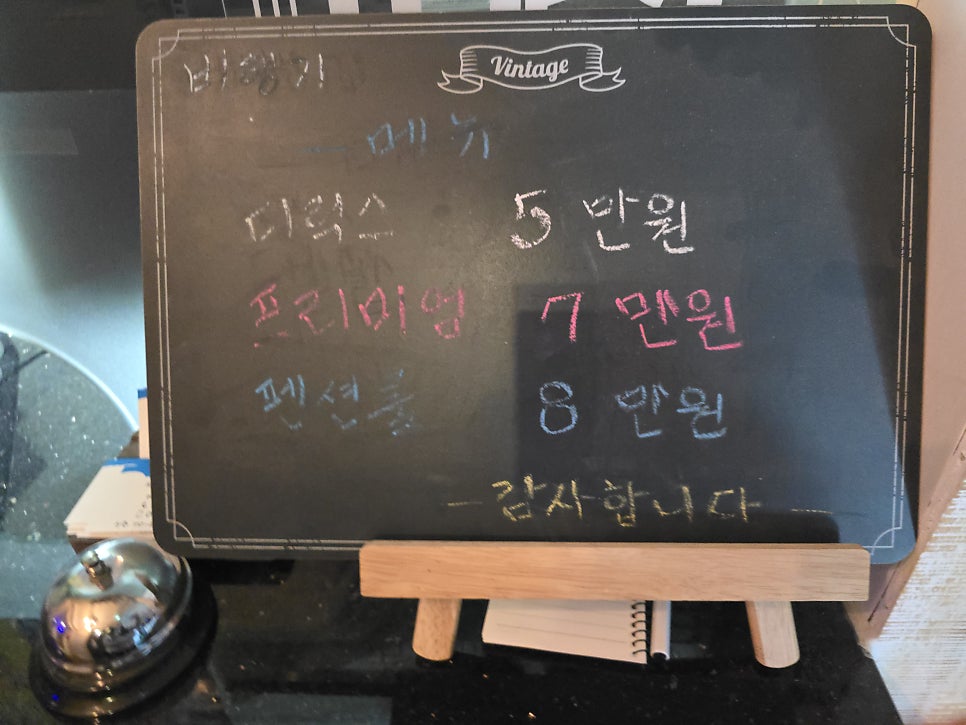 Vintage
비행기
- 메뉴
디럭스 5만원
프리미엄 7만원
펜션룸 8만원
- 감사합니다 -